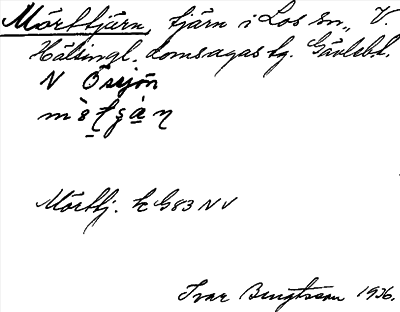 Mörttjärn, tjärn i Los sn., V.
Hälsingl. domsagas tg. Gävlebl.
N Össjön
Mörttj. k G83 NV
Ivar Bengtsson 1936.